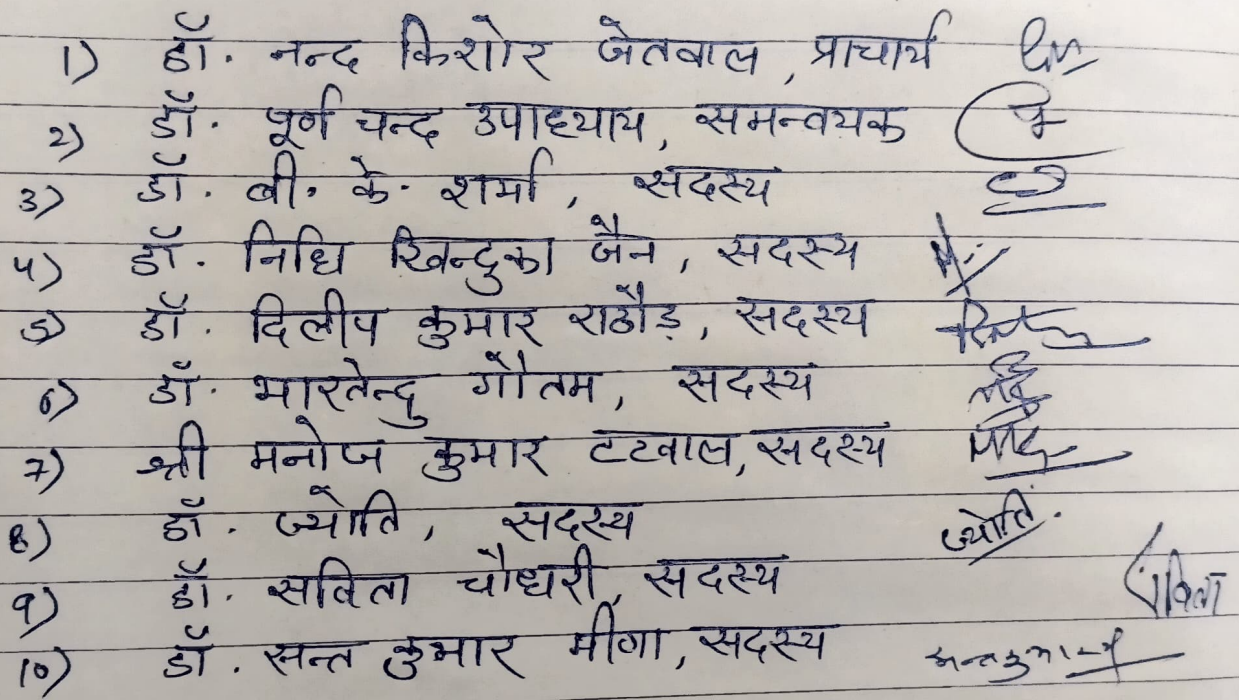 1) डॉ. नन्द किशोर जेतवाल, प्राचार्य
2) डॉ. पूर्ण चन्द उपाध्याय, समन्वयक
3) डॉ. बी. के. शर्मा, सदस्य
4) डॉ. निधि खिन्दुका जैन, सदस्य
5) डॉ. दिलीप कुमार राठौड़, सदस्य
6) डॉ. भारतेन्दु गौतम, सदस्य
7) श्री मनोज कुमार टटवाल, सदस्य
8) डॉ. ज्योति, सदस्य ज्योति.
9) डॉ. सविता चौधरी, सदस्य
10) डॉ. सन्त कुमार मीणा, सदस्य